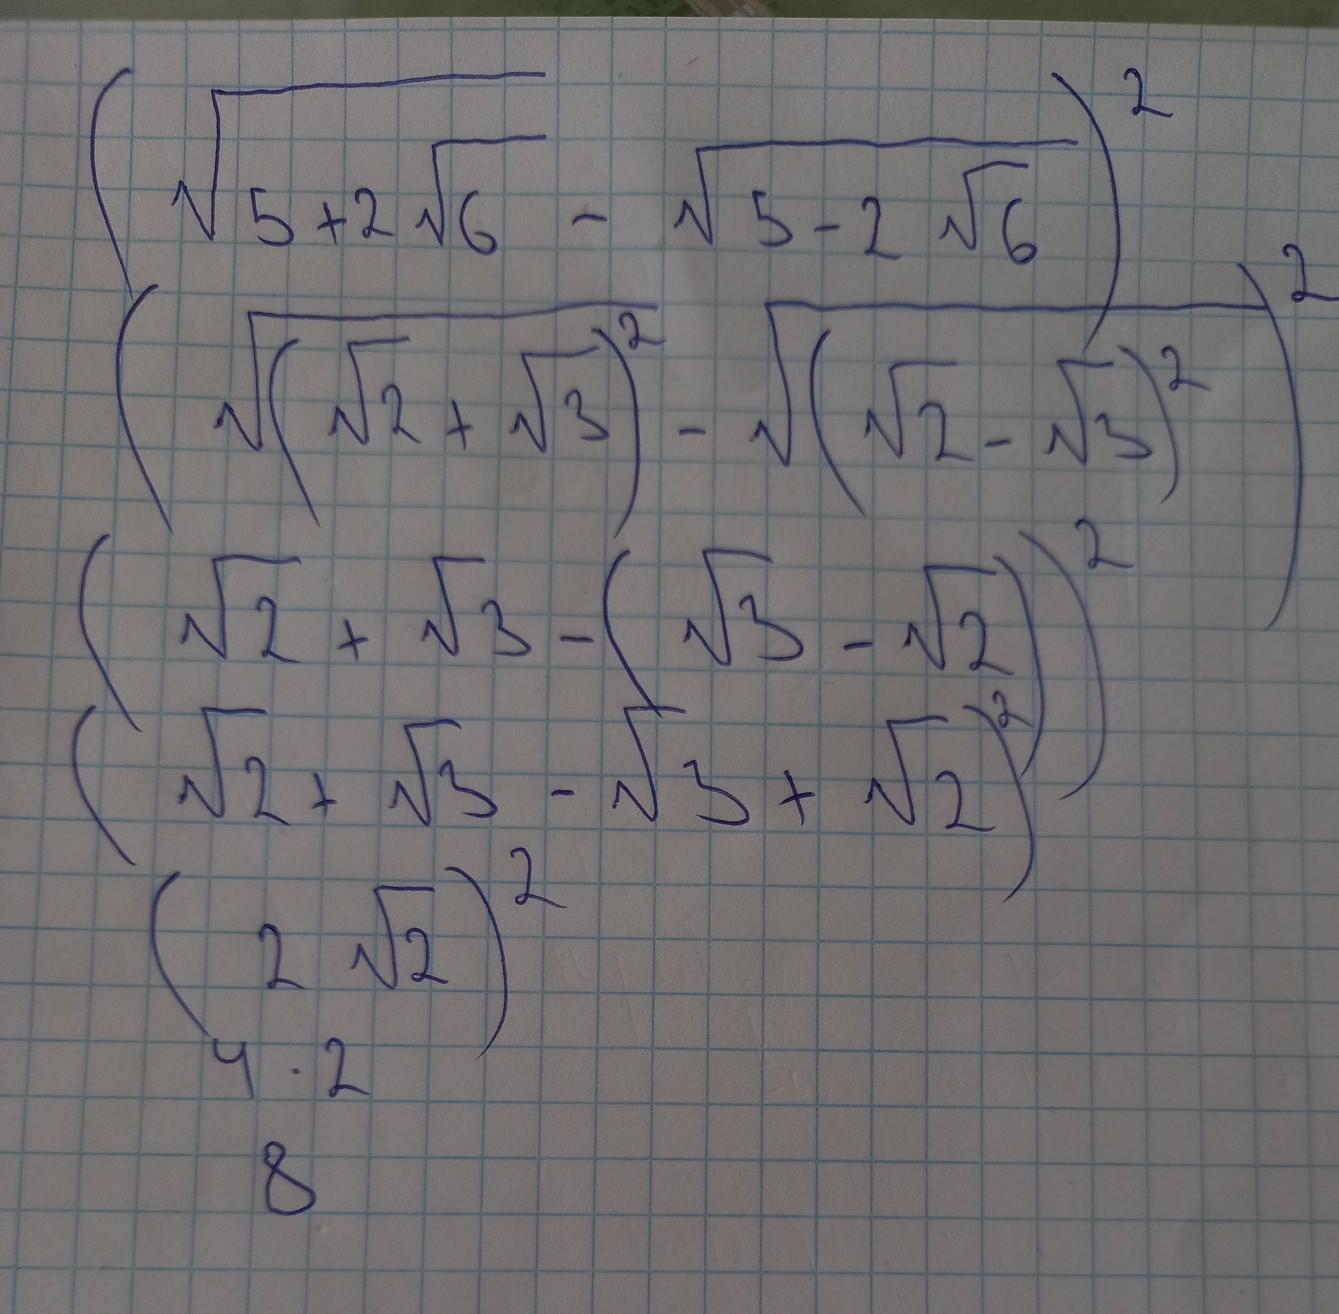 (√(5+2√6) - √(5-2√6))²
(√((√2+√3)²) - √((√2-√3)²))²
(√2 + √3 - (√3 - √2))²
(√2 + √3 - √3 + √2)²
(2√2)²
4 · 2
8